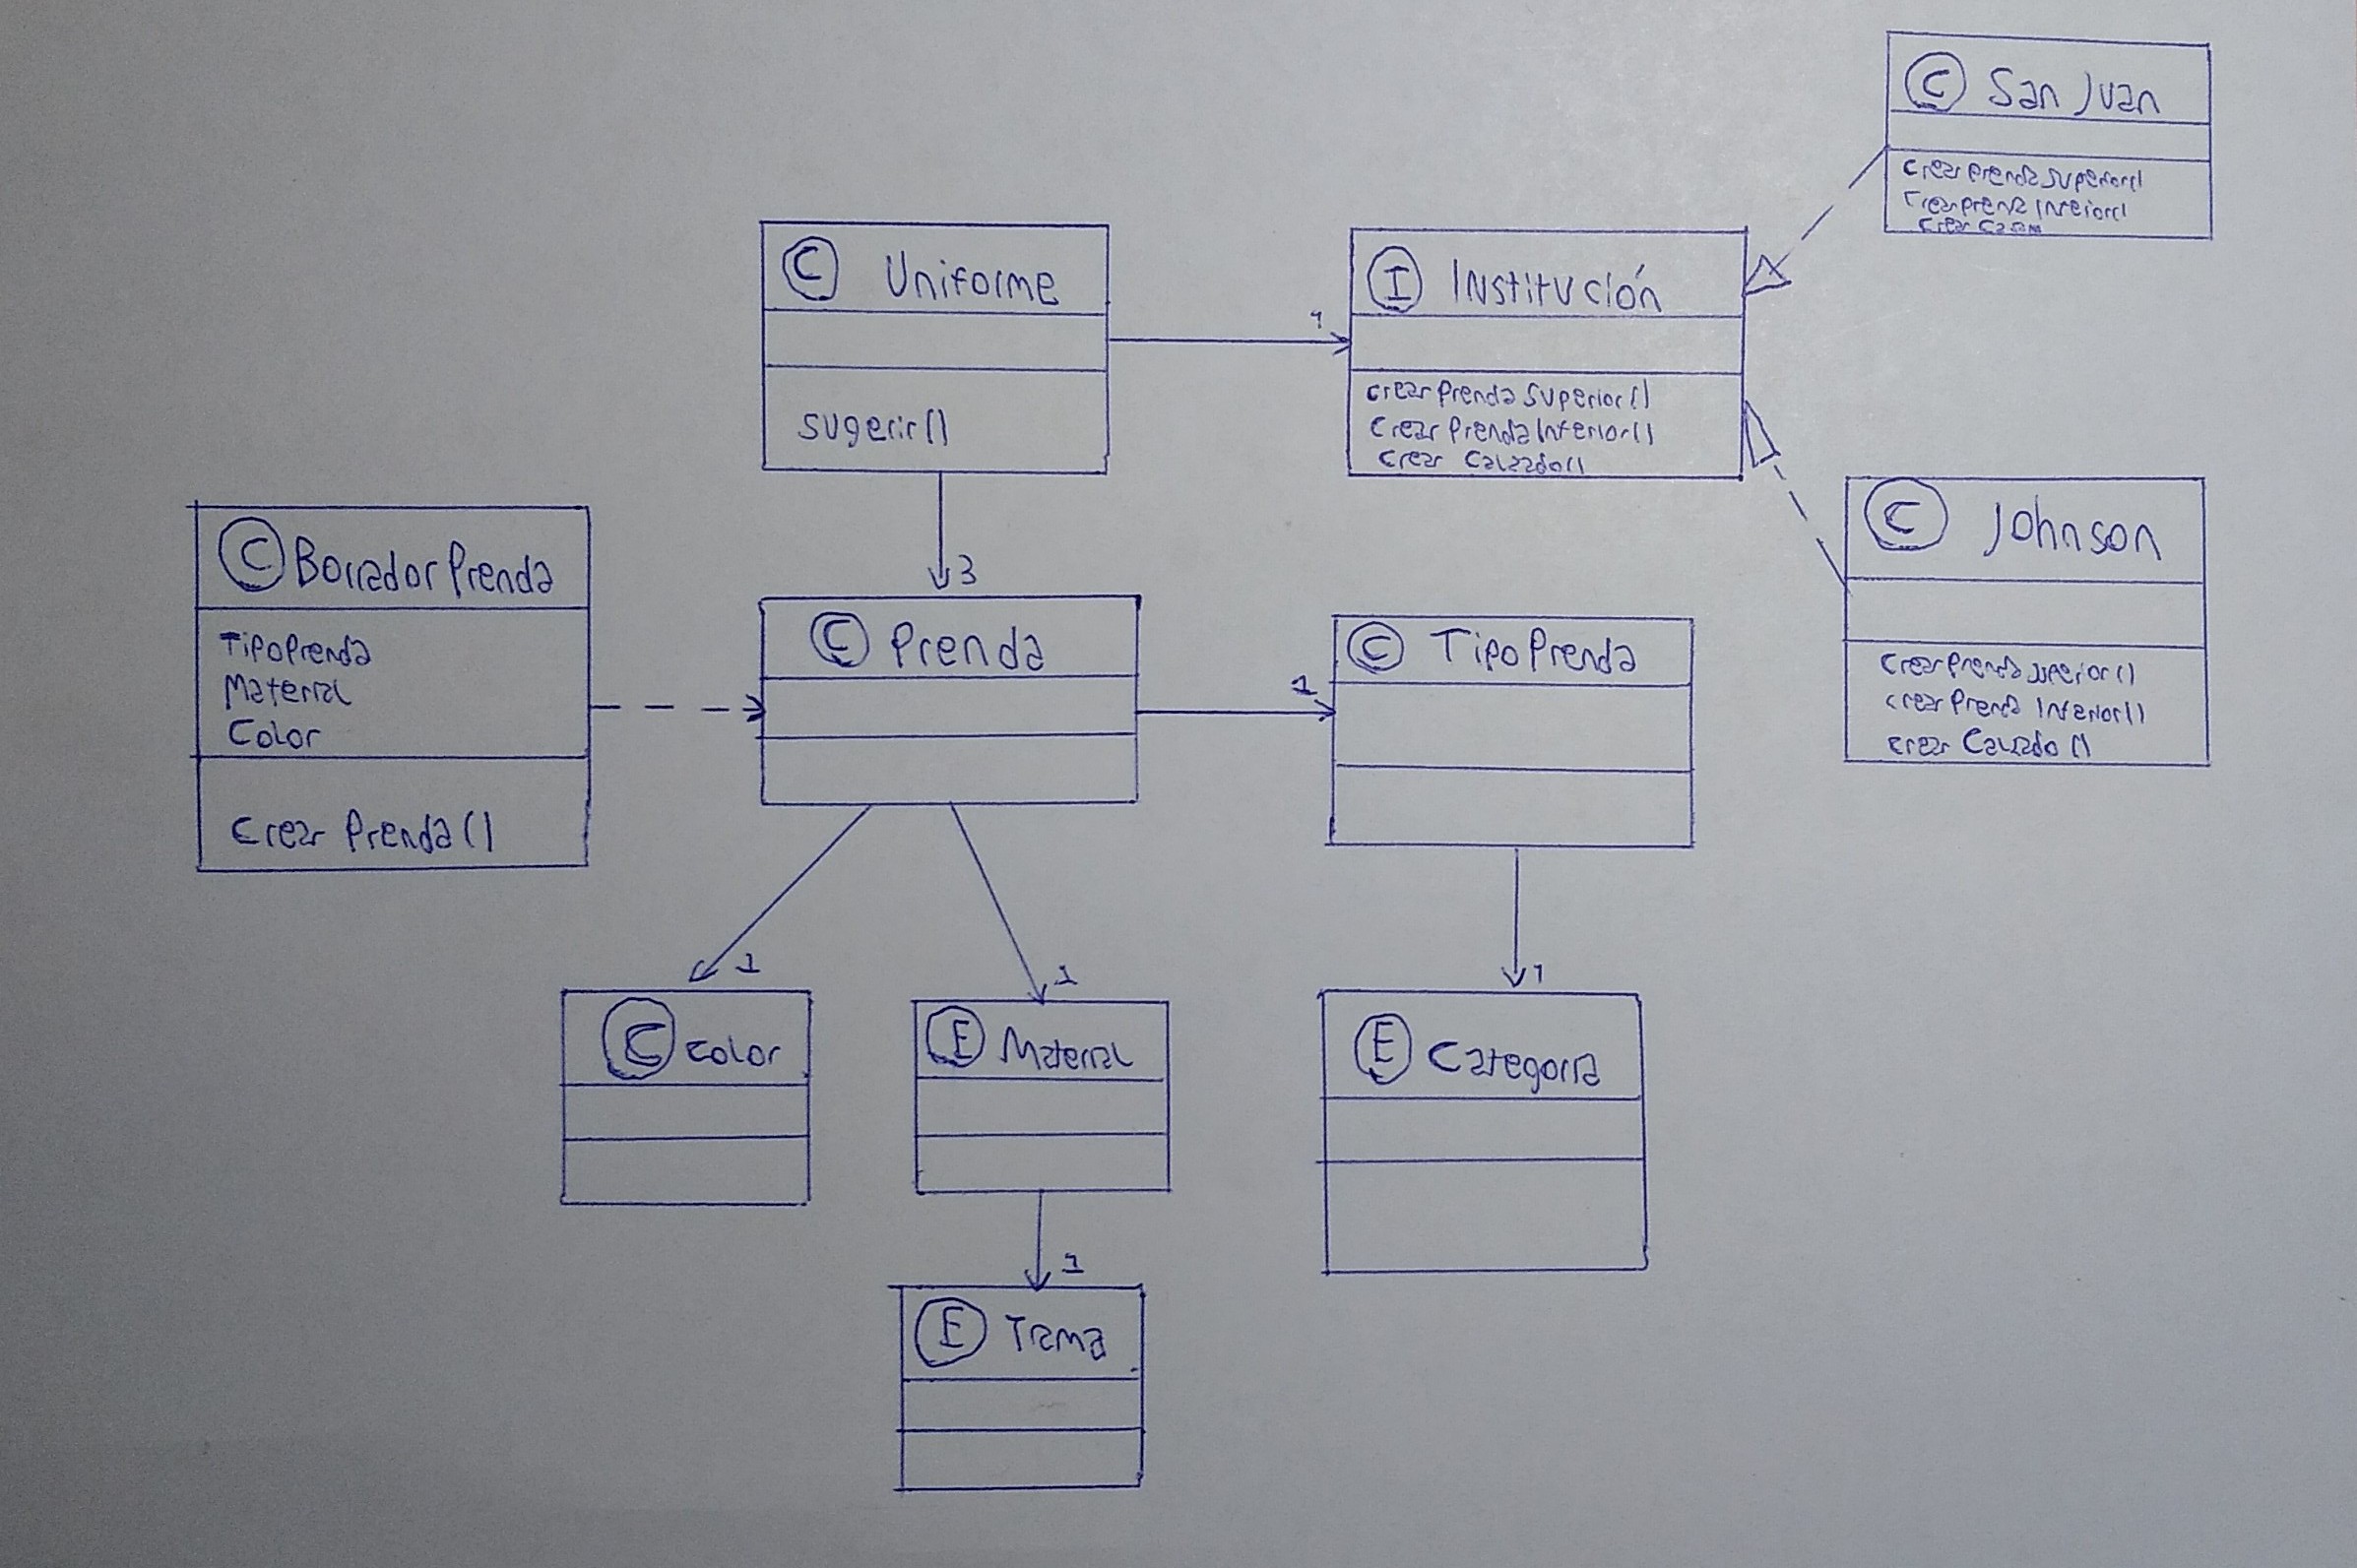 C San Juan
crearPrendaSuperior()
C Uniforme
sugerir()
1
I Institución
crearPrendaSuperior()
crearPrendaInferior()
crear Calzado()
C Johnson
crearPrendaSuperior()
crearPrenda Inferior()
crear Calzado()
C BorradorPrenda
TipoPrenda
Material
Color
Crear Prenda()
3
C Prenda
1
C TipoPrenda
1
C Color
1
E Material
1
E Categoria
1
E Trama